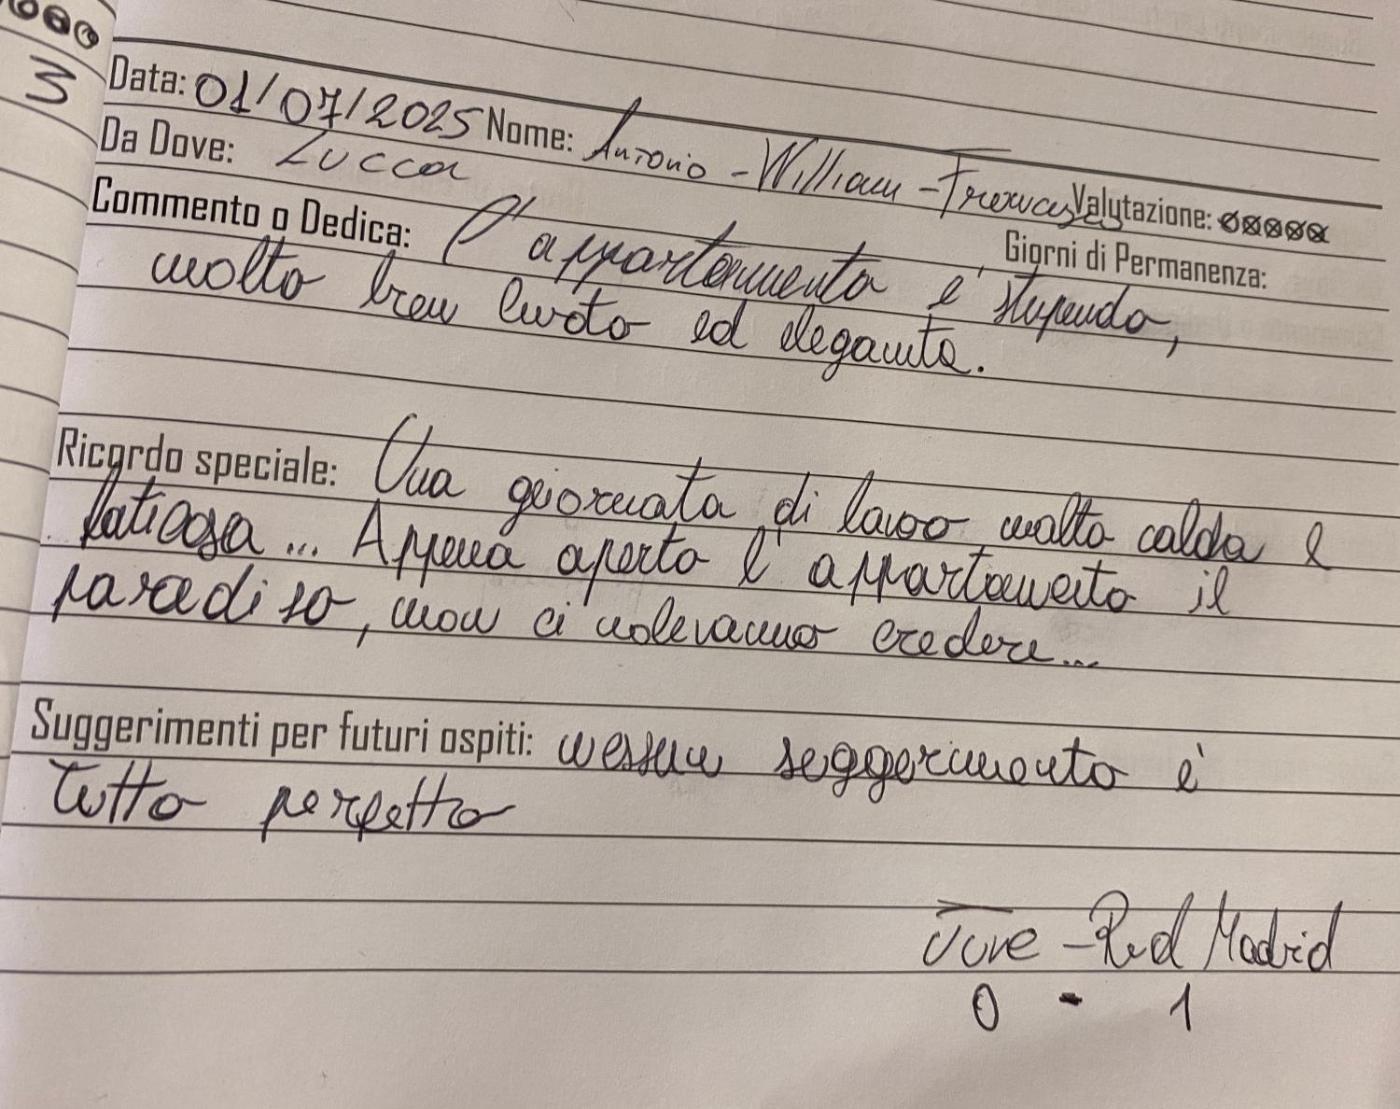 3
Data: 01/07/2025 Nome: Antonio - William - Francesco
Da Dove: Lucca Valutazione:
Giorni di Permanenza:
Commento o Dedica: l'appartamento è stupendo,
molto ben curato ed elegante.
Ricordo speciale: Una giornata di lavoo molto calda e
faticosa... Appena aperto l'appartamento il
paradiso, non ci volevamo credere...
Suggerimenti per futuri ospiti: nessun seggerimento è
tutto perfetto
Juve - Real Madrid
0 - 1